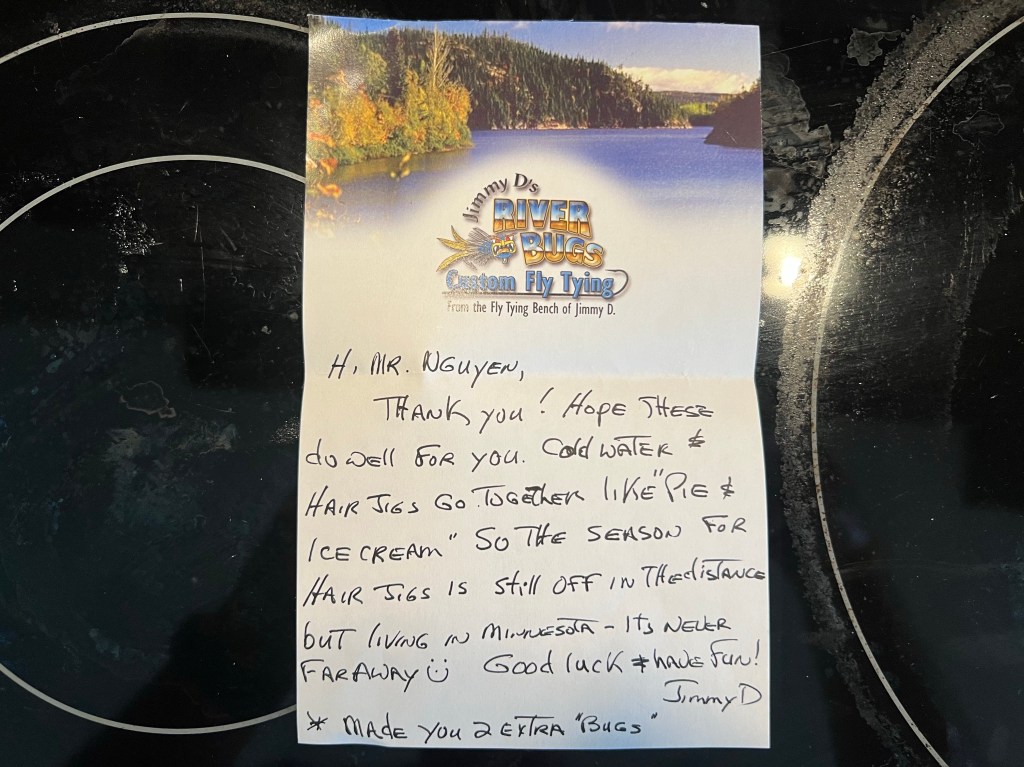 Jimmy D's
RIVER
BUGS
Custom Fly Tying
From the Fly Tying Bench of Jimmy D.
Hi MR. NGUYEN,
THANK you! Hope THESE
do well FOR you. Cold WATER &
HAIR JIGS GO TOGETHER like "PIE &
ICE CREAM" So THE SEASON FOR
HAIR JIGS IS still OFF IN THE distance
but living in MINNESOTA - Its NEVER
FAR AWAY Good luck & have fun!
Jimmy D
* MADE you 2 EXTRA "BUGS"